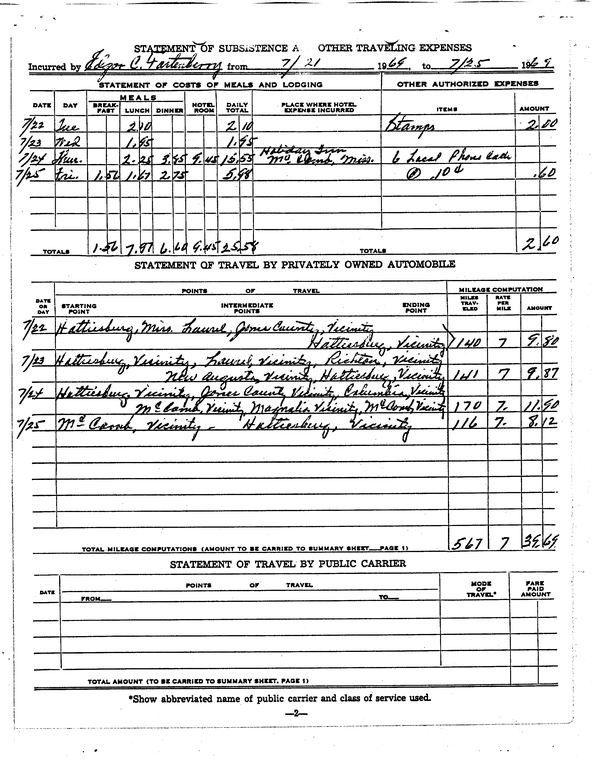 STATEMENT OF SUBSISTENCE A OTHER TRAVELING EXPENSES
Incurred by Edgar C. Fortenberry from 7/21 1969 to 7/25 1969
STATEMENT OF COSTS OF MEALS AND LODGING OTHER AUTHORIZED EXPENSES
DATE DAY MEALS BREAK-FAST LUNCH DINNER HOTEL ROOM DAILY TOTAL PLACE WHERE HOTEL EXPENSE INCURRED ITEMS AMOUNT
7/22 Tue 2 10 2 10 Stamps 2 00
7/23 Wed 1.95 1.95
7/24 Thur. 2.25 3.85 9.45 15.55 Holiday Inn Mc Comb, Miss. 6 Local Phone Calls
7/25 Fri. 1.56 1.67 2.75 5.98 @ .10¢ .60
TOTALS 1.56 7.97 6.60 9.45 25.58 TOTALS 2.60
STATEMENT OF TRAVEL BY PRIVATELY OWNED AUTOMOBILE
POINTS OF TRAVEL MILEAGE COMPUTATION
DATE OR DAY STARTING POINT INTERMEDIATE POINTS ENDING POINT MILES TRAV-ELED RATE PER MILE AMOUNT
7/22 Hattiesburg, Miss. Laurel, Jones County, Vicinity
Hattiesburg, Vicinity 140 7 9.80
7/23 Hattiesburg, Vicinity, Laurel, Vicinity, Richton, Vicinity
New Augusta, Vicinity, Hattiesburg, Vicinity 141 7 9.87
7/24 Hattiesburg Vicinity, Jones County Vicinity, Columbia, Vicinity
McComb, Vicinity, Magnolia Vicinity, McComb, Vicinity 170 7. 11.90
7/25 McComb, Vicinity - Hattiesburg, Vicinity 116 7. 8.12
TOTAL MILEAGE COMPUTATIONS (AMOUNT TO BE CARRIED TO SUMMARY SHEET PAGE 1) 567 7 39.69
STATEMENT OF TRAVEL BY PUBLIC CARRIER
DATE POINTS OF TRAVEL MODE OF TRAVEL* FARE PAID AMOUNT
FROM TO
TOTAL AMOUNT (TO BE CARRIED TO SUMMARY SHEET, PAGE 1)
*Show abbreviated name of public carrier and class of service used.
—2—